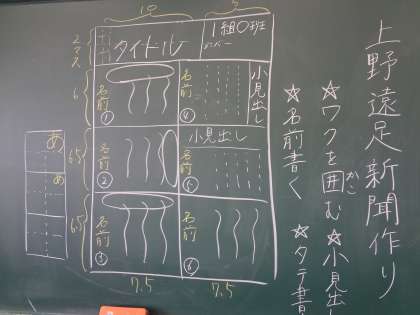 上野遠足新聞作り
☆ワクを囲む ☆小見出し
かこ
☆名前書く ☆タテ書
10
5
2マス
タイトル
1組〇班
メンバー
6
名前
①
名前
④
小見出し
6.5
名前
②
小見出し
名前
⑤
6.5
名前
③
名前
⑥
7.5
7.5
あ
あ